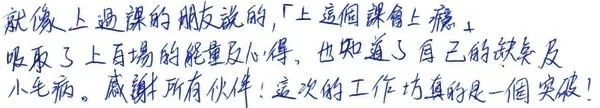 就像上過課的朋友說的，「上這個課會上癮」
吸取了上百場的能量及心得，也知道了自己的缺失及
小毛病。感謝所有伙伴！這次的工作坊真的是一個突破！